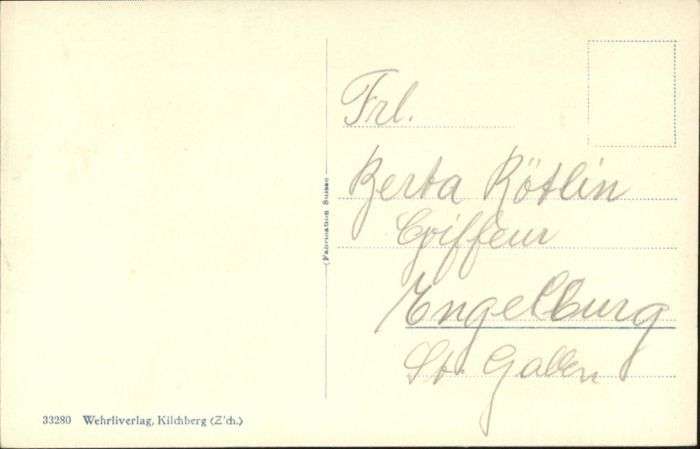 Frl.
Berta Rötlin
Coiffeur
Engelburg
St. Gallen
(Fabrication Suisse)
33280 Wehrliverlag, Kilchberg (Z'ch.)